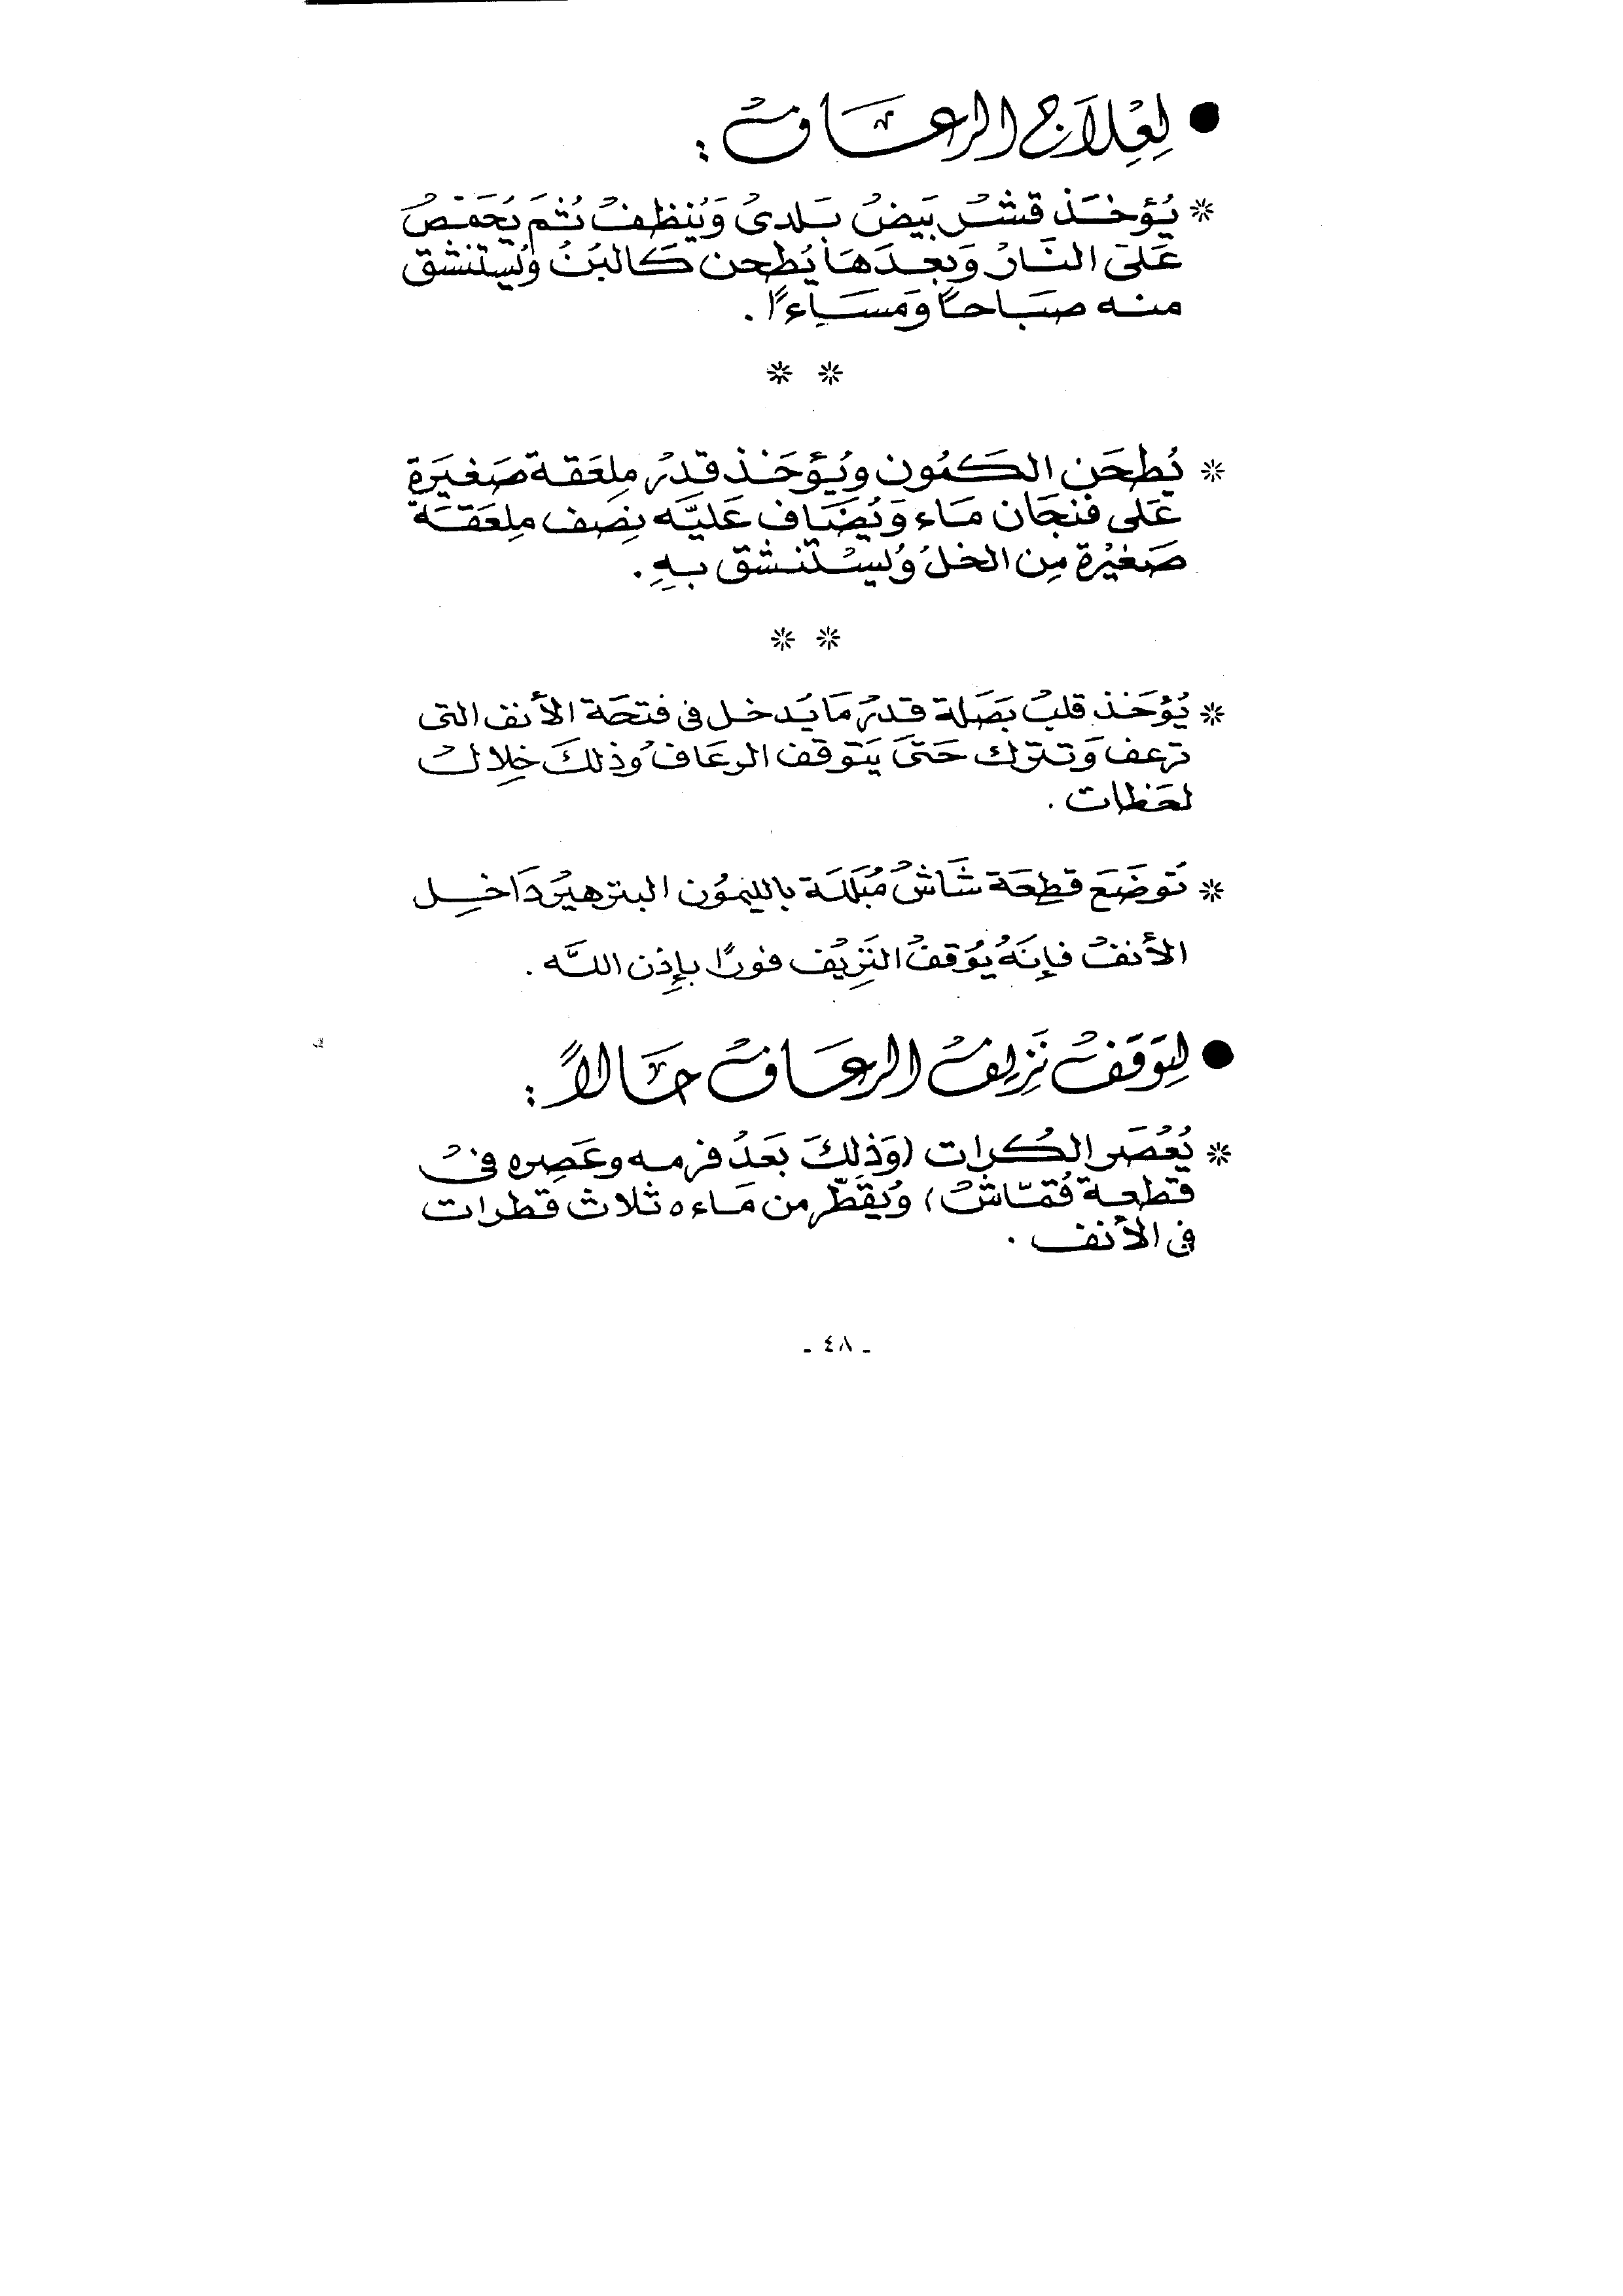 ● لِعِلَاج الرعَاف :
* يُؤخَذ قشر بَيض بَلدى وَيُنظف ثُم يُحَمَص
عَلَى النَّار وَبعدَهَا يُطحن كَالبُن وَيُستنشق
منه صبَاحًا وَمسَاءًا .
* *
* يُطحَن الكَمُون ويُؤخَذ قدر مِلعَقة صَغيرَة
عَلى فنجَان مَاء وَيُضَاف عَليَه نِصَف مِلعَقَة
صَغيْرة مِن الخل وَيُستنشق بِهِ .
* *
* يُؤخَذ قلب بَصَلة قدر مَا يَدخل فى فتحَة الأنف التى
ترعف وَتترك حَتىَ يَتوقف الرعَاف وَذلكَ خِلال
لحَظات .
* تَوضَع قطِعَة شَاش مُبَللَة بالليَمُون البنزهير دَاخِل
الأنف فإنَهُ يُوَقف النَزِيْف فورًا بإِذن اللَّه .
● لِتَوَقَف نَزِيف الرعَاف حَالاً :
* يُعْصَر الكُرات (وَذلِكَ بَعَد فرمه وعَصِره فى
قطعة قُمَّاش) وَيُقَطَّر من مَاءه ثلاث قطرات
فى الأنف .
- ٤٨ -